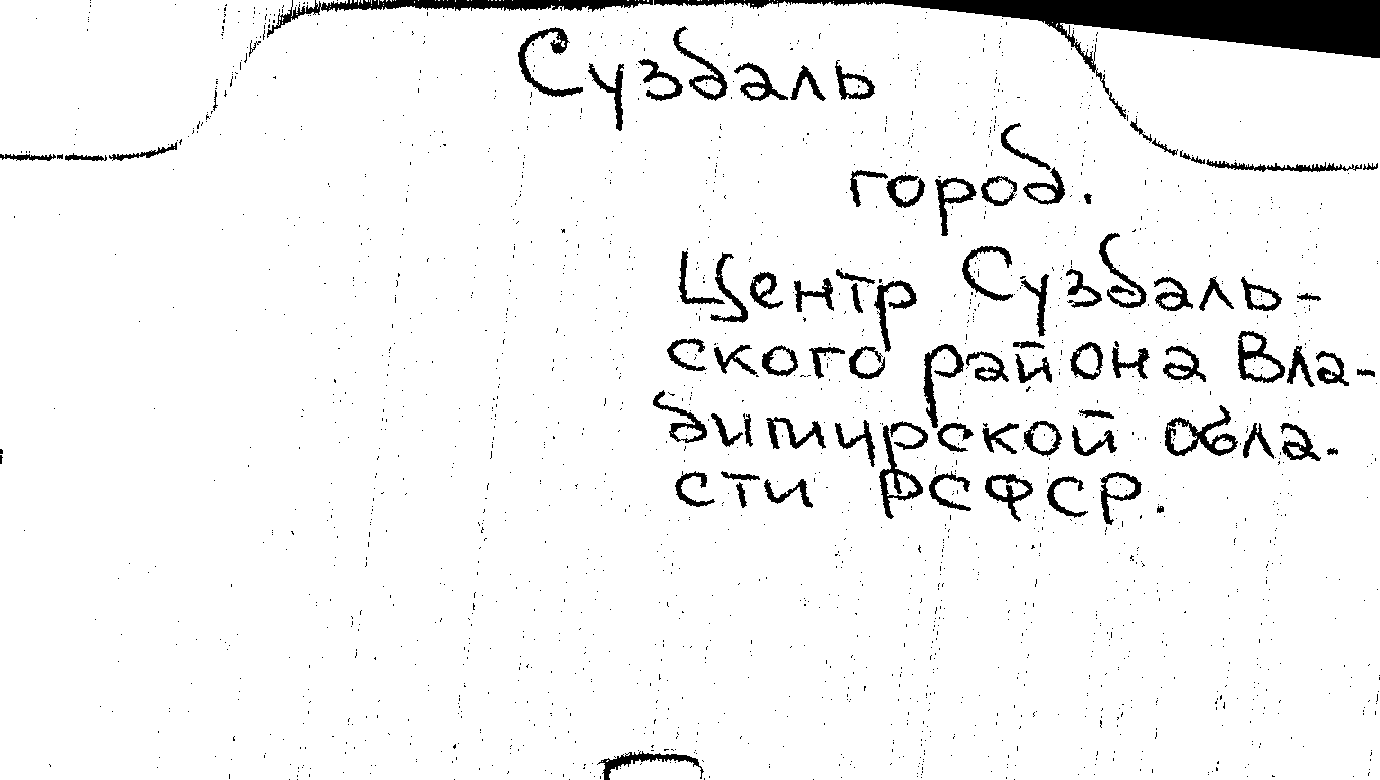 Суздаль
город.
Центр Суздаль-
ского района Вла-
димирской обла-
сти РСФСР.